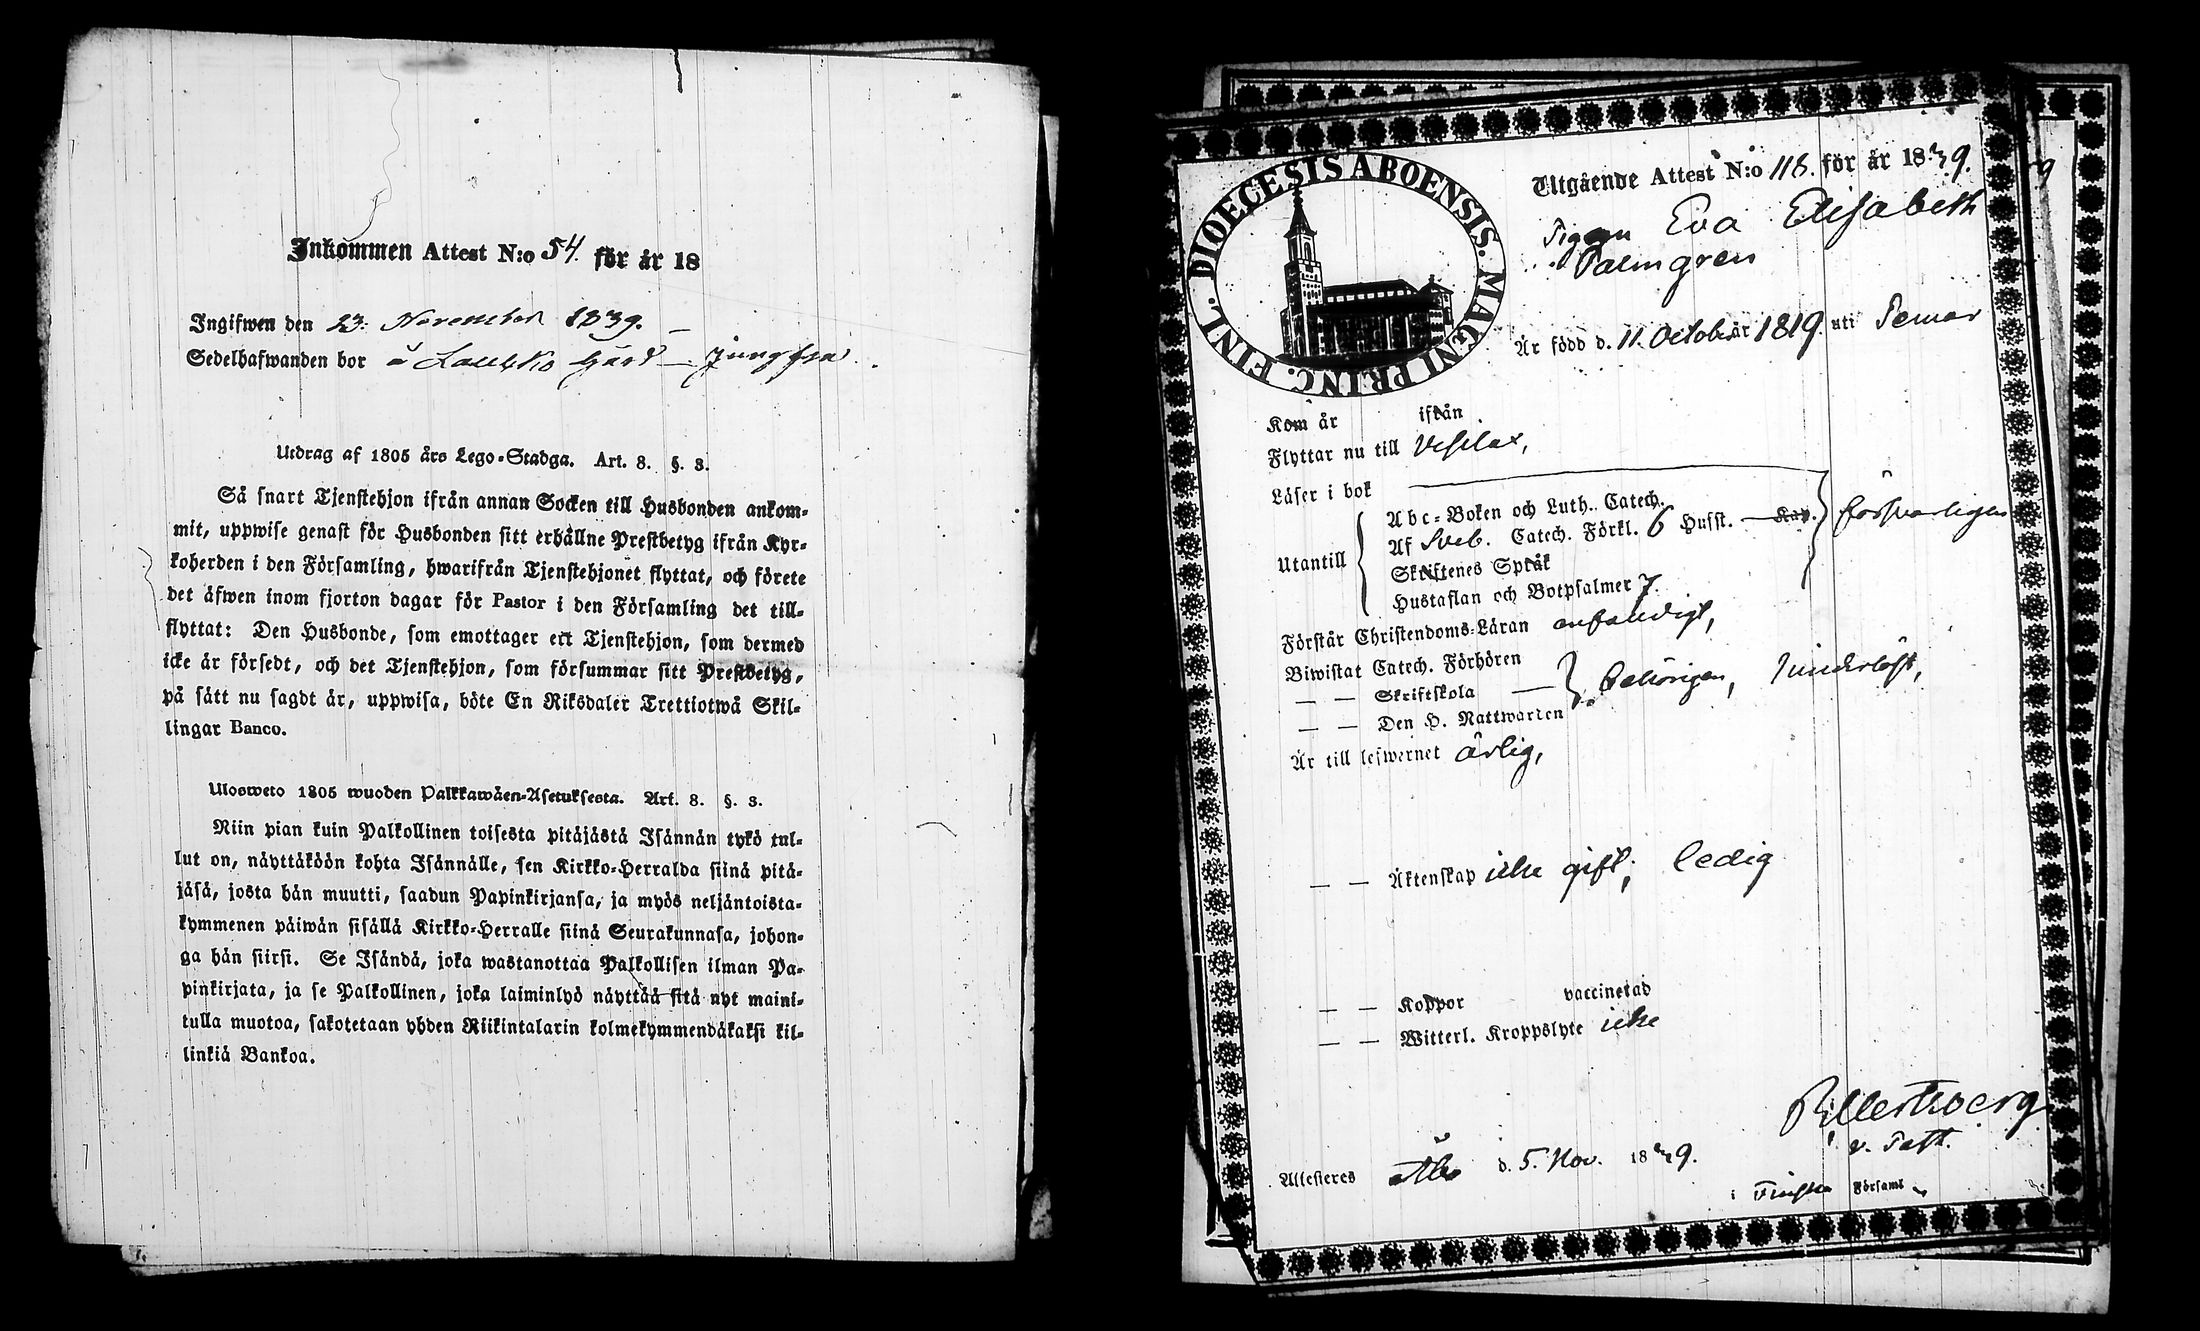 Inkommen Attest N:o 54. för år 18
Ingifwen den 23. November 1839. —
Sedelhafwanden bor å Laukko Gård — Jungfru.
Utdrag af 1805 års Lego-Stadga. Art. 8. §. 3.
Så snart Tjenstehjon ifrån annan Socken till Husbonden ankom-
mit, uppwise genast för Husbonden sitt erhållne Prestbetyg ifrån Kyr-
koherden i den Församling, hwarifrån Tjenstehjonet flyttat, och förete
det äfwen inom fjorton dagar för Pastor i den Församling det till-
flyttat: Den Husbonde, som emottager ett Tjenstehjon, som dermed
icke är försedt, och det Tjenstehjon, som försummar sitt Prestbetyg,
på sätt nu sagdt är, uppwisa, böte En Riksdaler Trettiotwå Skil-
lingar Banco.
Ulosweto 1805 wuoden Palkkawäen-Asetuksesta. Art. 8. §. 3.
Niin pian kuin Palkollinen toisesta pitäjästä Isännän tykö tul-
lut on, näyttäköön kohta Isännälle, sen Kirkko-Herralda siinä pitä-
jäsä, josta hän muutti, saadun Papinkirjansa, ja myös neljäntoista-
kymmenen päiwän sisällä Kirkko-Herralle siinä Seurakunnasa, johon-
ga hän siirsi. Se Isändä, joka wastanottaa Palkollisen ilman Pa-
pinkirjata, ja se Palkollinen, joka laiminlyö näyttää sitä nyt maini-
tulla muotoa, sakotetaan yhden Riikintalarin kolmekymmendäkaksi kil-
linkiä Bankoa.
DIOECESIS ABOENSIS. MAGNI PRINC. FINL.
Utgående Attest N:o 118. för år 1839.
Pigan Eva Elisabeth
Palmgren
Är född d. 11. October år 1819. uti Pemar
Kom år ifrån
Flyttar nu till Vesilax,
Läser i bok
Utantill
Abc-Boken och Luth. Catech.
Af Sveb. Catech. Förkl. 6 Husst. — Kap.
försvarligen
Skriftenes Språk
Hustaflan och Botpsalmer 7.
Förstår Christendoms-Läran enfaldigt,
Biwistat Catech. Förhören
— — Skriftskola —
behörigen, hinderlöst,
— — Den H. Nattwarden
Är till lefwernet ärlig,
— — Äktenskap icke gift, ledig
— — Koppor vaccinerad
— — Witterl. Kroppslyte icke
v. Past.
Attesteres Åbo d. 5. Nov. 1839.
i Finska Församl